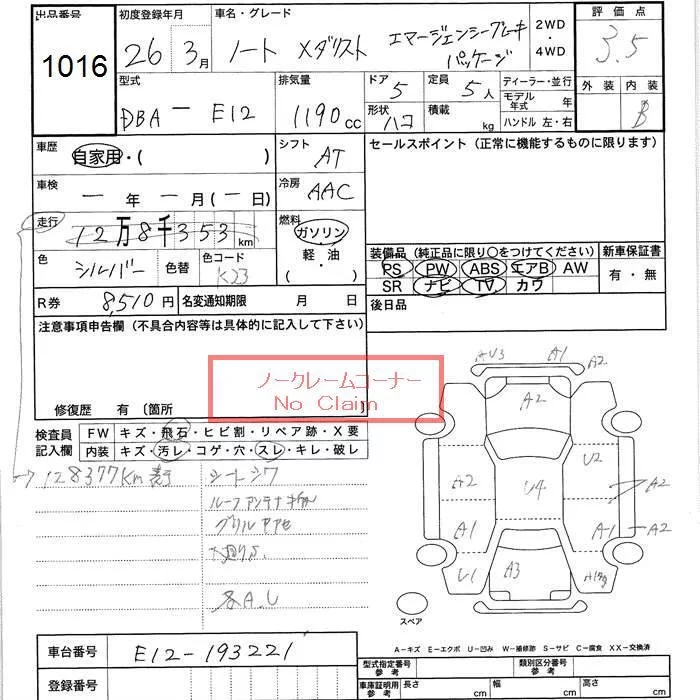 出品番号
1016
初度登録年月
26年3月
車名・グレード
ノート メダリスト エマージェンシーブレーキ
パッケージ
2WD
・
4WD
評価点
3.5
外装 内装
B
型式
DBA - E12
排気量
1190cc
ドア
5
定員
5人
形状
ハコ
積載
kg
ディーラー・並行
モデル年式 年
ハンドル 左・右
車歴
自家用・( )
シフト
AT
車検
— 年 — 月(— 日)
冷房
AAC
走行
12万8千353km
燃料
ガソリン
軽・油
( )
色
シルバー
色替
色コード
K23
R券
8,510円
名変通知期限 月 日
セールスポイント(正常に機能するものに限ります)
装備品(純正品に限り〇をつけてください)
PS PW ABS エアB AW
SR ナビ TV カワ
新車保証書
有・無
後日品
注意事項申告欄(不具合内容等は具体的に記入して下さい)
ノークレームコーナー
No Claim
修復歴 有〔箇所 〕
検査員
記入欄
FW キズ・飛石・ヒビ割・リペア跡・X要
内装 キズ・汚レ・コゲ・穴・スレ・キレ・破レ
→128377km表示
シートシワ
ルーフアンテナ
グリル
各A.U
AU3 A1 A2
A2
A2 U2
U4 A2
A1 A-1 A2
U1 A3
スペア
A-キズ E-エクボ U-凹み W-補修跡 S-サビ C-腐食 XX-交換済
車台番号
E12-193221
登録番号
型式指定番号
参考
類別区分番号
参考
車庫証明用
参考
長さ cm 幅 cm 高さ cm